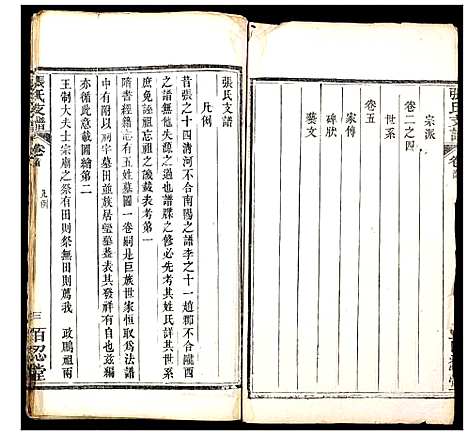 張氏支譜 卷首
宗派
卷二之四
世系
卷五
家傳
碑狀
藝文
張氏支譜
凡例
昔張之十四清河不合南陽之譜李之十一趙郡不合隴西
之譜無他失源之過也譜牒之修必先考其姓氏詳其自
庶免誣祖忘祖之譏裁表考第一
隋書經籍志有楊氏五姓墓圖一卷嗣是巨族世家恒取爲法譜
中有附以祠宇墳族居塋墓蓋表其發祥有自也茲編
亦循此意裁圖繪第二
王制大夫士宗廟之祭有田則祭無田則薦我 政鵬祖兩
張氏支譜 卷首 凡例 三 百忍堂